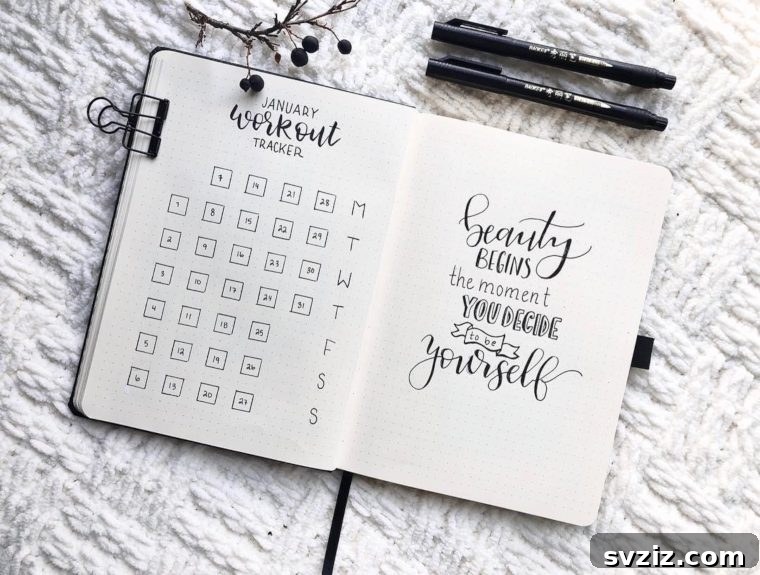 JANUARY
workout
TRACKER
7 14 21 28 M
1 8 15 22 29 T
2 9 16 23 30 W
3 10 17 24 31 T
4 11 18 25 F
5 12 19 26 S
6 13 20 27 S
beauty
BEGINS
the moment
YOU DECIDE
to be
yourself
svziz.com